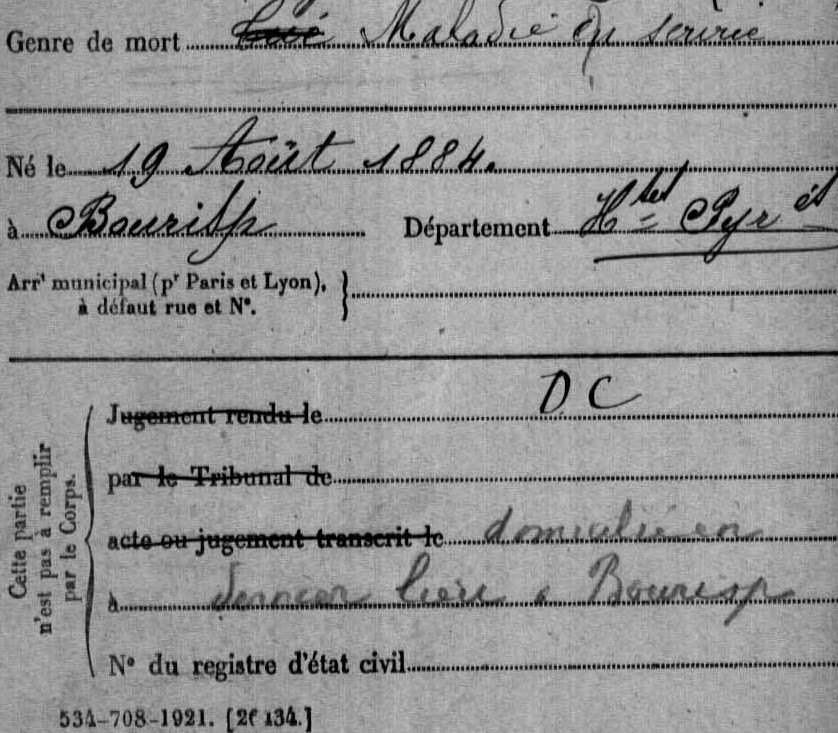 Genre de mort Tué Maladie du service
Né le 19 Août 1884.
à Bourisp Département Htes Pyr ées
Arrt municipal (pr Paris et Lyon),
à défaut rue et N°.
Cette partie
n'est pas à remplir
par le Corps.
Jugement rendu le D C
par le Tribunal de
acte ou jugement transcrit le domicilié en
à dernier lieu à Bourisp
N° du registre d'état civil
534-708-1921. [26134.]